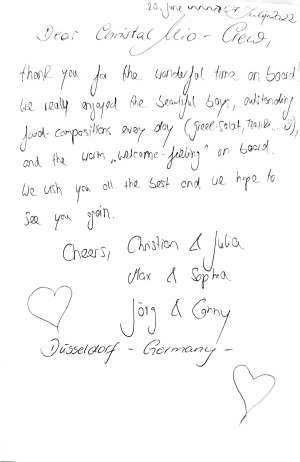 Dear Christal Mio - Crew,
thank you for the wonderful time on board!
We really enjoyed the beautiful bays, outstanding
food-compositions every day (greek-Salat, Tzatziki... :)),
and the warm „welcome-feeling" on board.
We wish you all the best and we hope to
see you again.
Cheers, Christian & Julia
Max & Sophia
Jörg & Conny
Düsseldorf - Germany -